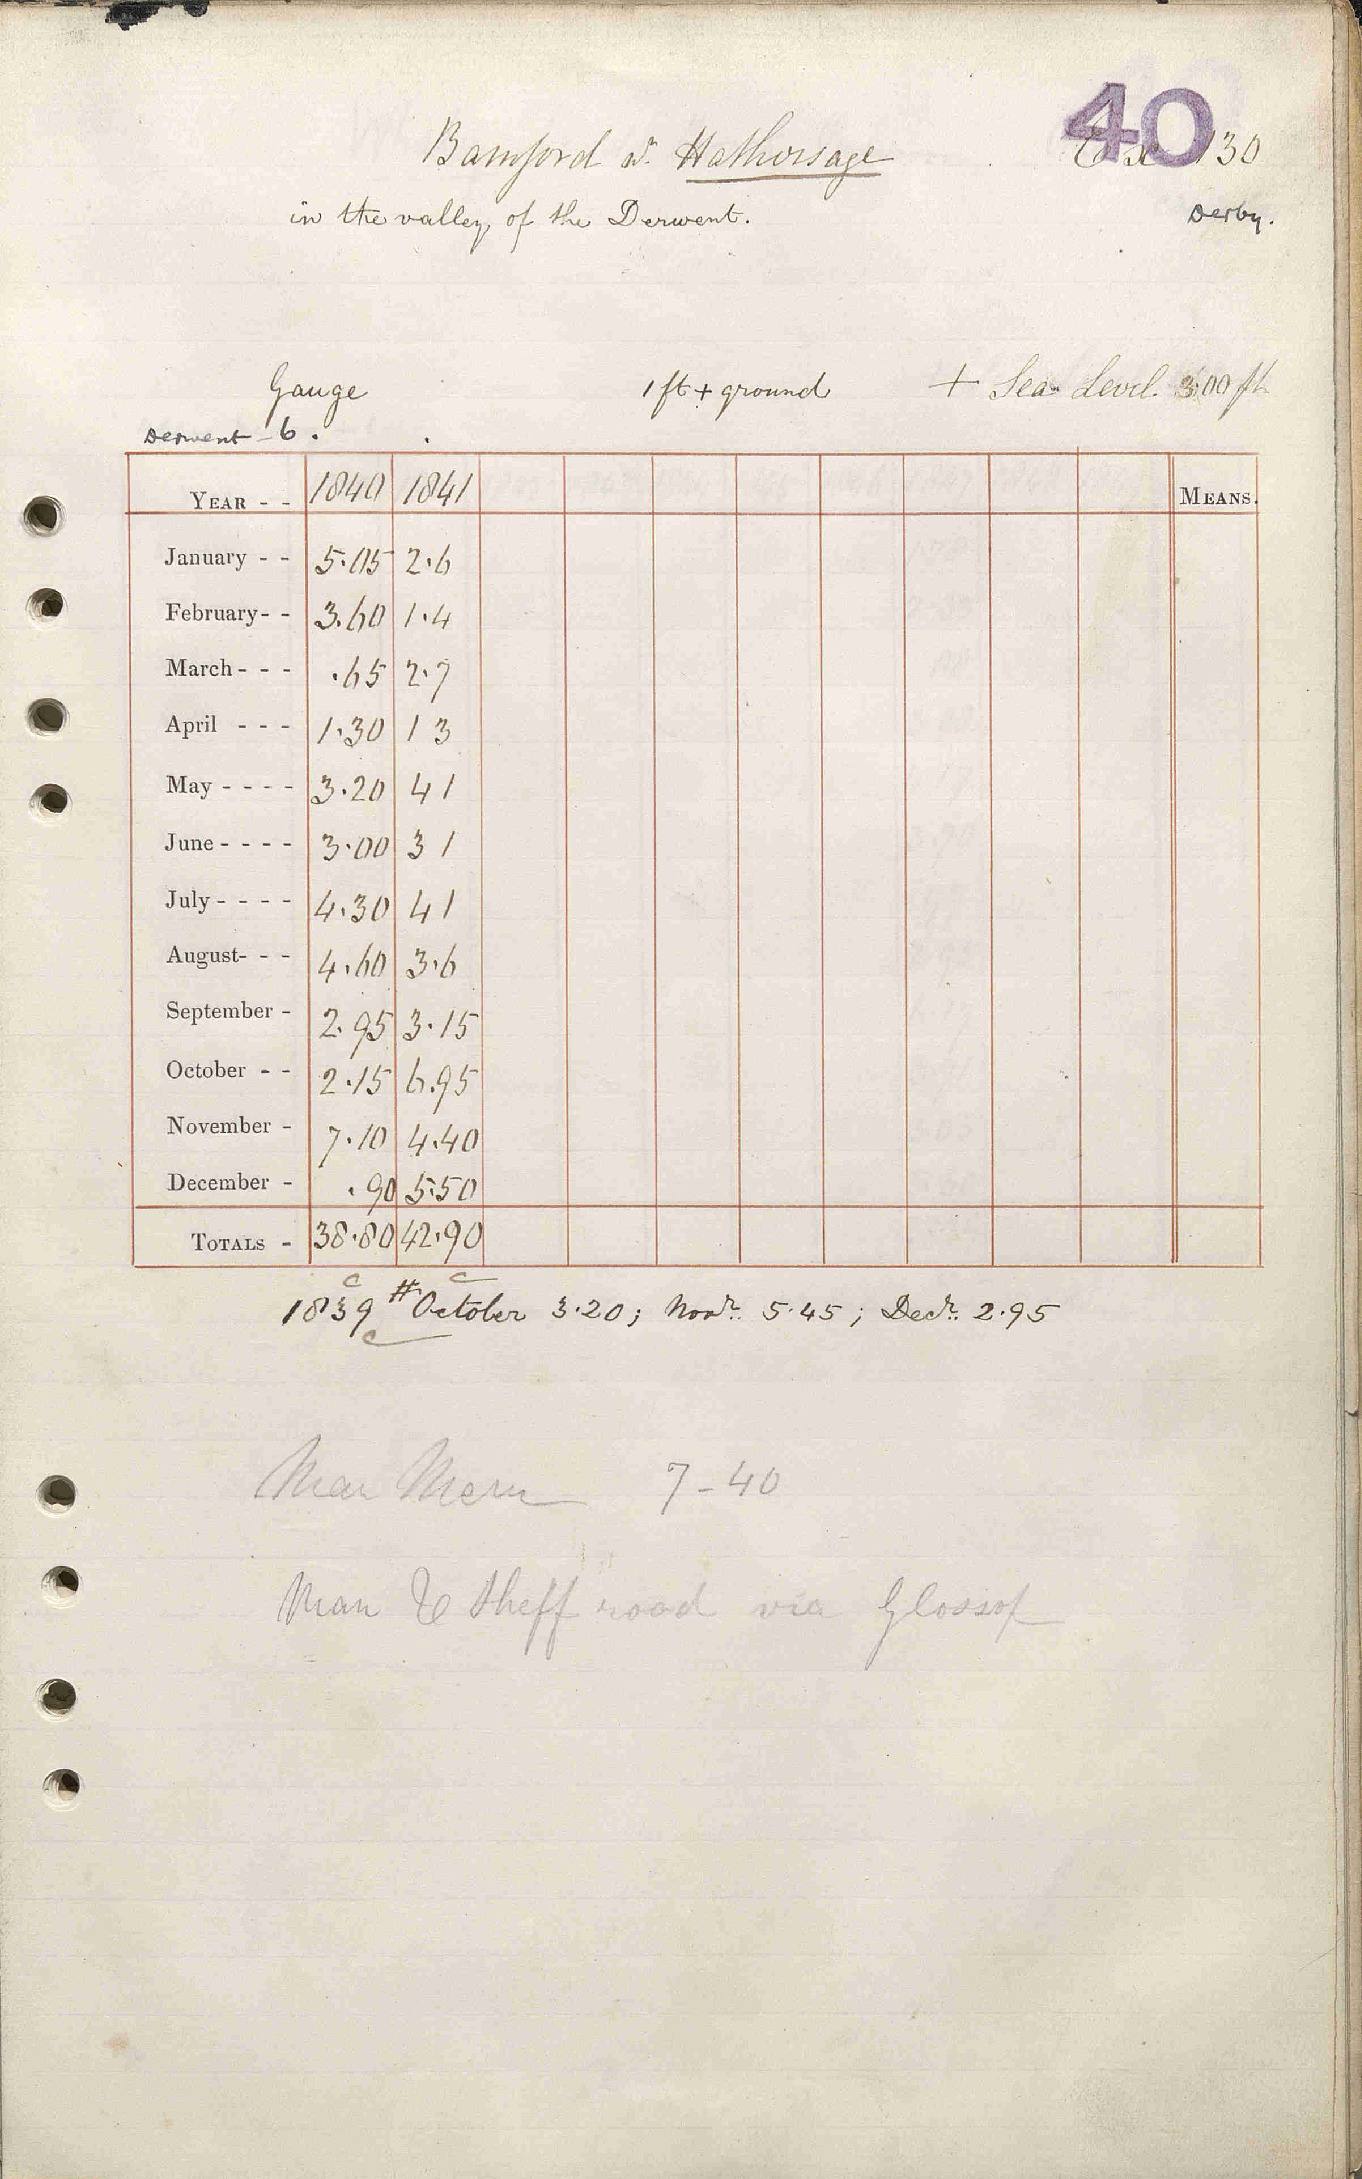 40
Bamford nr. Hathersage 130
in the valley of the Derwent. Derby.
Gauge 1 ft + ground + Sea Level 300 ft
Derwent - 6.
YEAR - - 1840 1841 MEANS.
January - - 5.05 2.6
February - - 3.60 1.4
March - - - .65 2.7
April - - - 1.30 1 3
May - - - - 3.20 4 1
June - - - - 3.00 3 1
July - - - - 4.30 4 1
August - - - 4.60 3.6
September - 2.95 3.15
October - - 2.15 6.95
November - 7.10 4.40
December - .90 5.50
TOTALS - 38.80 42.90
1839 # October 3.20; Novr. 5.45; Decr. 2.95
Man Mem 7-40
Man & Sheff road via Glossop